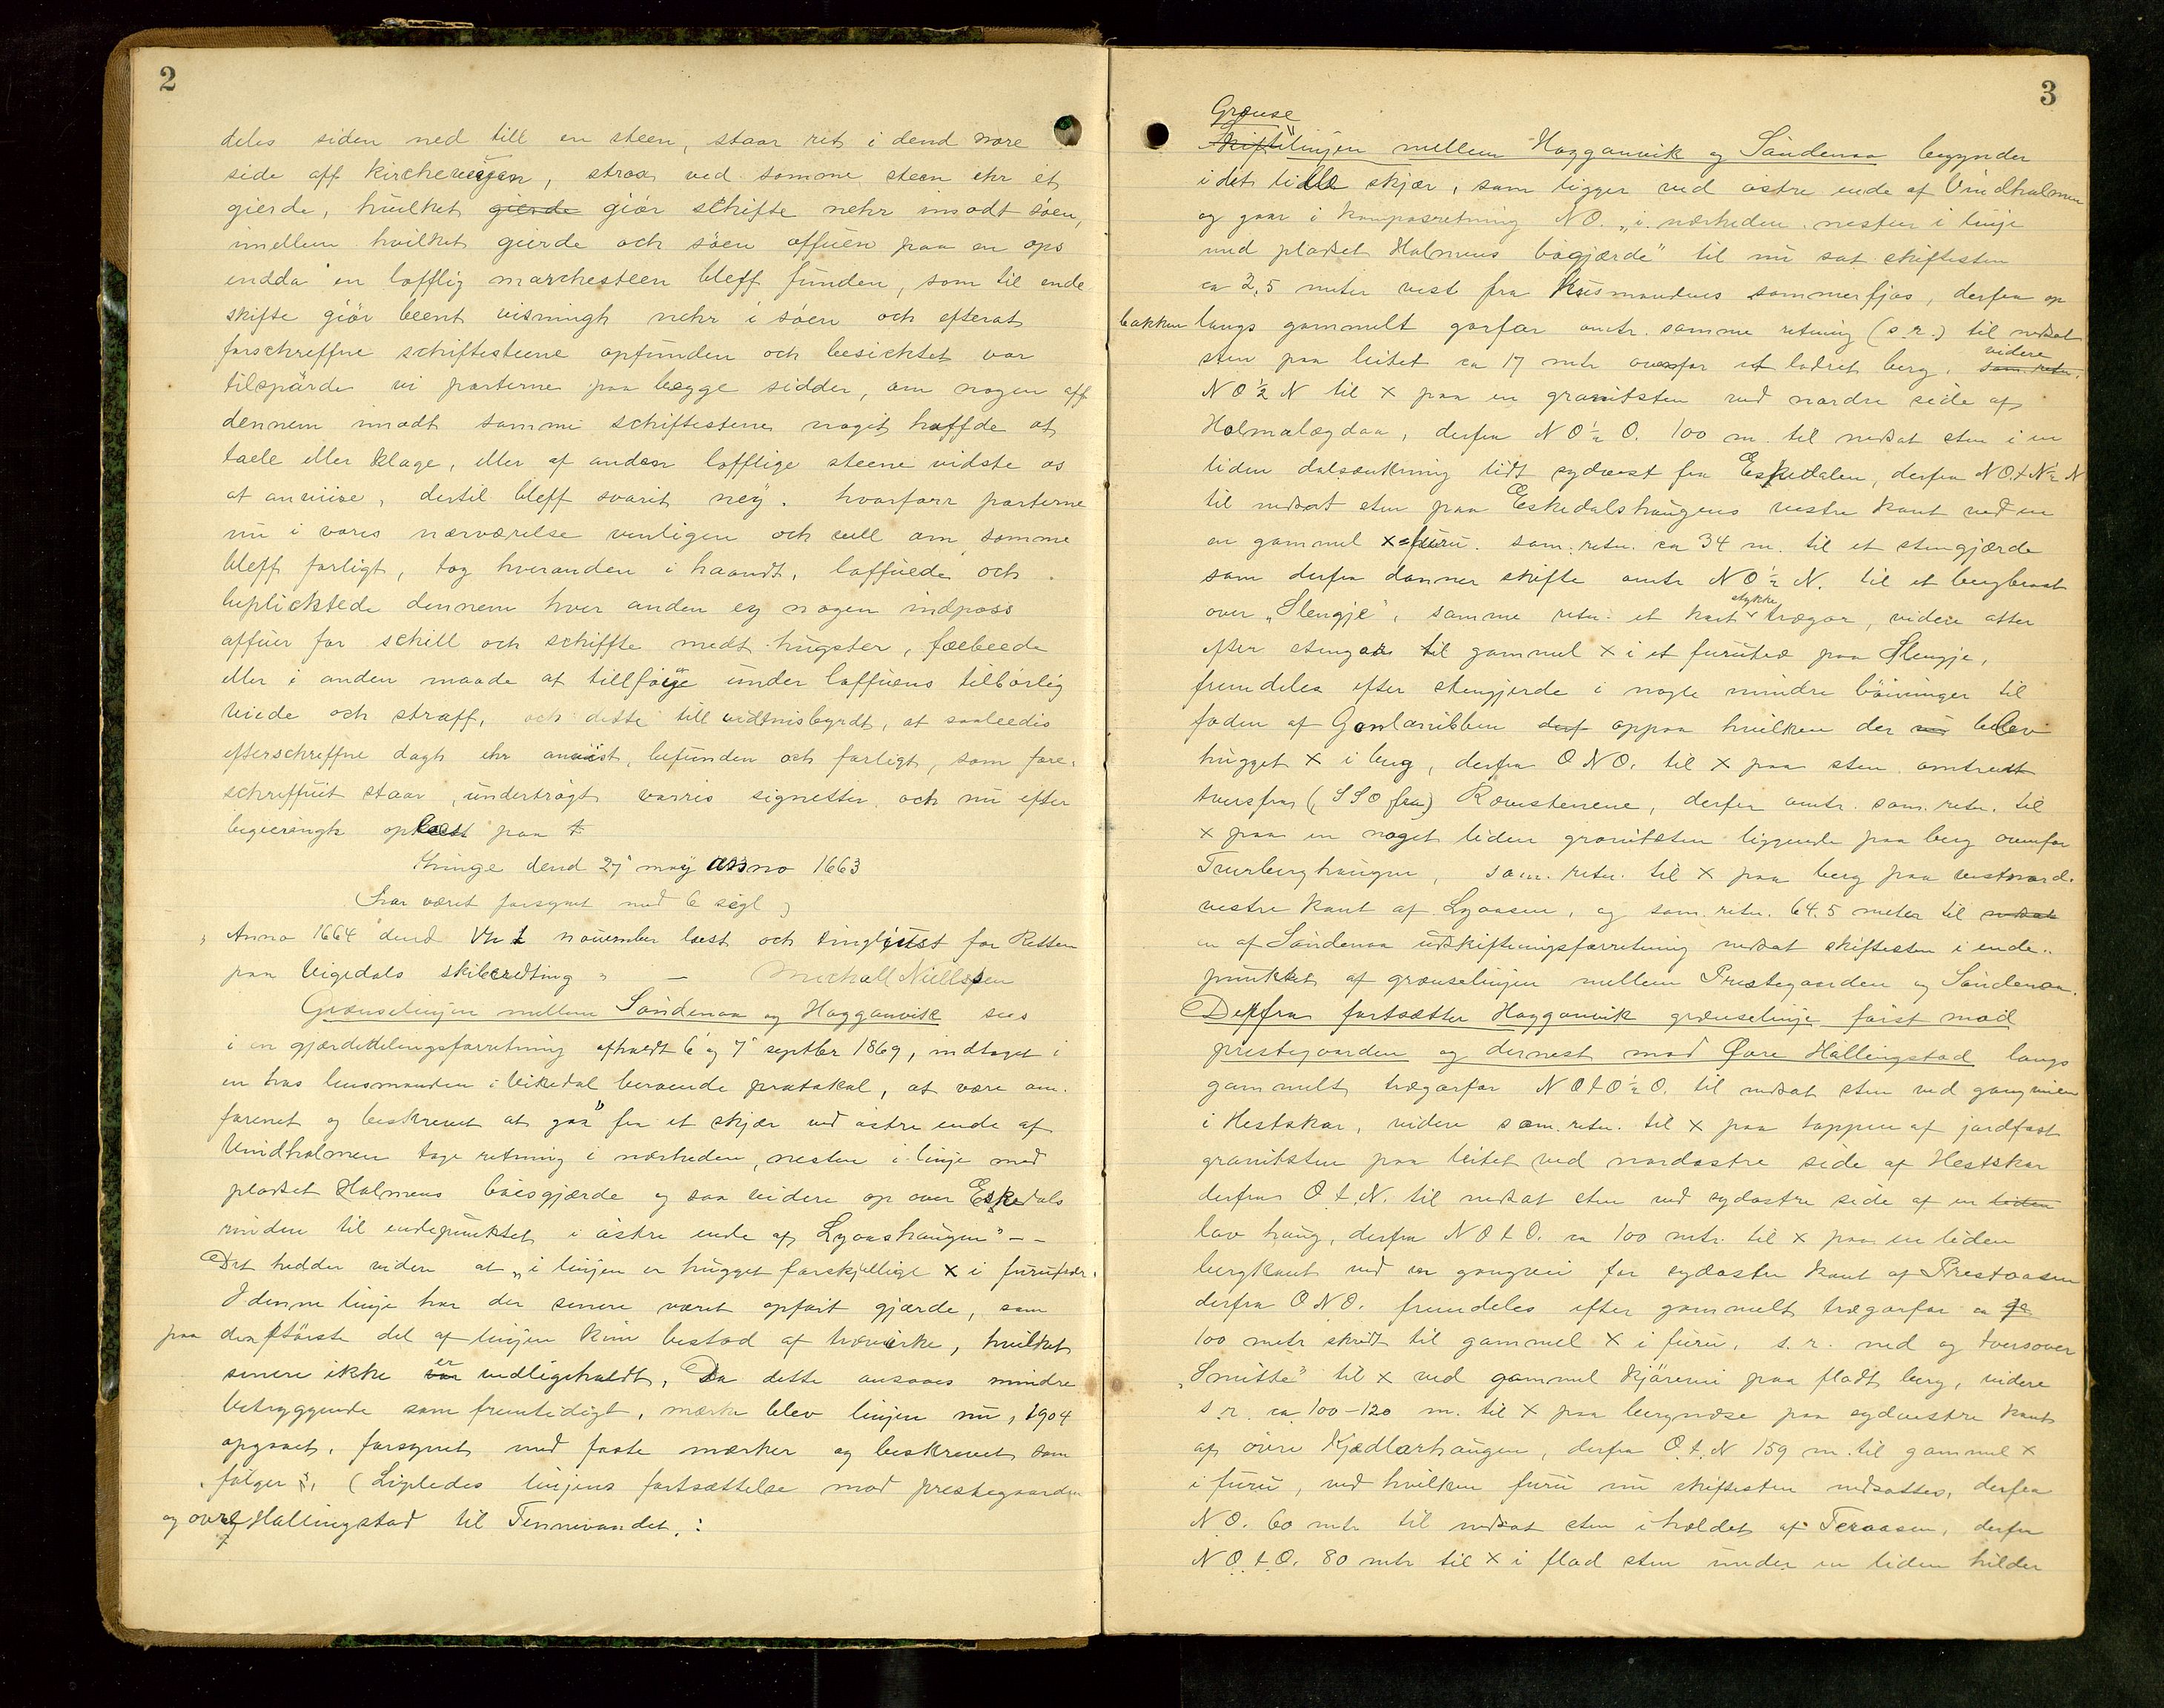 2
deles siden ned till en steen, staar ret i dend nore
side aff Kircheveigen, strax ved samme steen ehr et
gierde, huilket gierde giør schifte nehr imodt søen,
imellem huilket gierde och søen offuen paa en ops
endda en lofflig marchesteen bleff funden, som til ende
skifte giør beent visningh nehr i søen och efterat
forschreffne schiftesteene opfunden och besichtet var
tilspørde vi parterne paa begge sidder, om nogen aff
dennem imodt samme schiftestene noget haffde at
taele eller klage, eller af anden lofflige steene vidste os
at anviise, dertil bleff svarit ney. hvorforr parterne
nu i voris nærværelse venligen och vell om somme
bleff forligt, tog hverandn i haandt, loffuede och
beplicktede dennem hver anden ey nogen indpass
offuer for schill och schiffte medt hugster, fæbeede
eller i anden maade at tillføye under loffuens tilbørlig
viide och straff, och dette till vidtnisbyrdt, at saaleedis
efterschreffne dagh ehr anviist, befunden och forligt, som fore-
schreffuit staar, undertrøgt vorris signetter, och nu efter
begieringh oplæst paa t
thinge dend 27 may anno 1663
(har været forsynet med 6 segl)
"Anno 1664 dend november læst och tinglyust for Retten
paa Vigedals skiberedting" — Michall Niellssen
Grænselinjen mellem Söndenaa og Hogganvik sees
i en gjærdedelingsforretning afholdt 6 og 7 septbr 1869, indtaget i
en hos lensmanden i Vikedal beroende protokol, at være om-
forenet og beskrevet at gaa "fra et skjær ved østre ende af
Vindholmen tage retning i nærheden, nesten i linje med
pladset Holmens bøisgjærde og saa videre op over Eskedals
rinden til endepunktet i østre ende af Lyaashaugen" — —
Det hedder viden at "i linjen er hugget forskjellige x i furutrær.
I denne linje har der senere været opført gjærde, som
paa den største del af linjen kun bestod af trævirke, hvilket
senere ikke var er vedligeholdt. Da dette ansaaes mindre
betryggende som fremtidigt mærke blev linjen nu, 1904
opgaaet, forsynet med faste mærker og beskrevet som
følger: (Ligeledes linjens fortsættelse mod prestegaarden
og øvre Hallingstad til Tennevandet.:
3
Grænse
Skiftelinjen mellem Hogganvik og Söndenaa begynder
i det lille skjær, som ligger ved østre ende af Vindholmen
og gaar i kompasretning NO. "i nærheden nesten i linje
med pladset Holmens bøgjærde" til nu sat skiftesten
ca 2,5 meter vest fra Husmandens sommerfjøs, derfra op
bakken langs gammelt garfar omtr. samme retning (s.r.) til nedsat
sten paa leitet ca 17 mtr ovenfor et lodret berg. som. retn. videre
NO ½ N til x paa en granitsten ved nordre side af
Holmalægdaa, derfra NO ½ O. 100 m. til nedsat sten i en
liden dalsænkning lidt sydvest fra Eskedalen, derfra NO.t.N ½ N
til nedsat sten paa Eskedalshaugens vestre kant ved en
en gammel x furu. som. retn. ca 34 m. til et stengjærde
som derfra danner skifte omtr NO ½ N. til et bergbrat
over "Slengje", samme retn. et kort stykke trægar, videre atter
efter stengar til gammel x i et furutræ paa Slengje,
fremdeles efter stengjerde i nogle mindre bøininger til
foden af Gonlanibben derf oppaa hvilken der nu blev
hugget x i berg, derfra ONO. til x paa sten omtrent
tversfra (SSO fra) Rævstenene, derfra omtr. som. retn. til
x paa en noget liden granitsten liggende paa berg ovenfor
Tverberghaugen, som. retn. til x paa berg paa vestnord-
vestre kant af Lyaasen, og som. retn. 64.5 meter til nedsat
en af Söndenaa udskiftningsforretning nedsat skiftesten i ende-
punktet af grænselinjen mellem Prestegaarden og Söndenaa.
Derfra fortsætter Hogganvik grænselinje først mod
prestegaarden og dernest mod Øvre Hallingstad langs
gammelt trægarfar NOtO ½ O. til nedsat sten ved gangveien
i Hestskar, videre som. retn. til x paa toppen af jordfast
granitsten paa leitet ved nordøstre side af Hestskar
derfra O.t.N. til nedsat sten ved sydøstre side af en liden
lav haug, derfra NOtO. ca 100 mtr. til x paa en liden
bergkant ved en gangvei for sydøstre kant af Prestaasen
derfra ONO. fremdeles efter gammelt trægarfar ca
100 mtr skridt til gammel x i furu, s.r. ned og tversover
"Smitte" til x ved gammel kjørevei paa fladt berg, videre
s.r. ca 100-120 m. til x paa bergnase paa sydvestre kant
af øvre Kjedlarhaugen, derfra O.t.N 159 m. til gammel x
i furu, ved hvilken furu nu skiftesten nedsattes, derfra
NO. 60 mtr til nedsat sten i holdet af Teraasen, derfra
NO.t.O. 80 mtr til x i flad sten under en liden hilder